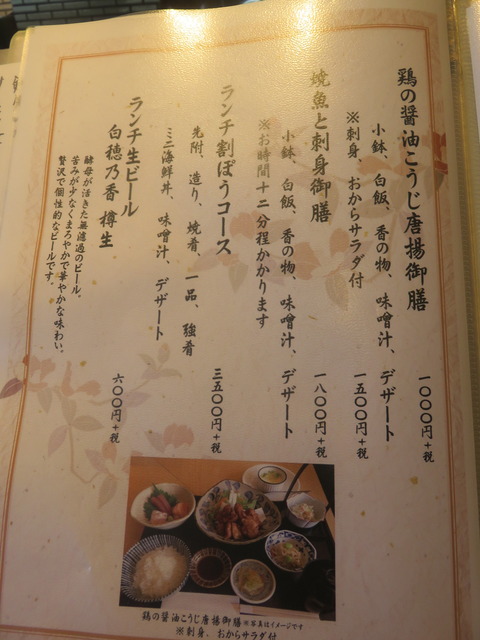 鶏の醤油こうじ唐揚御膳
一〇〇〇円+税
小鉢、白飯、香の物、味噌汁、デザート
※刺身、おからサラダ付
一五〇〇円+税
焼魚と刺身御膳
一八〇〇円+税
小鉢、白飯、香の物、味噌汁、デザート
※お時間十二分程かかります
ランチ割ぽうコース
三五〇〇円+税
先附、造り、焼肴、一品、強肴
ミニ海鮮丼、味噌汁、デザート
ランチ生ビール
白穂乃香 樽生
六〇〇円+税
酵母が活きた無濾過のビール。
苦みが少なくまろやかで華やかな味わい。
贅沢で個性的なビールです。
鶏の醤油こうじ唐揚御膳※写真はイメージです
※刺身、おからサラダ付